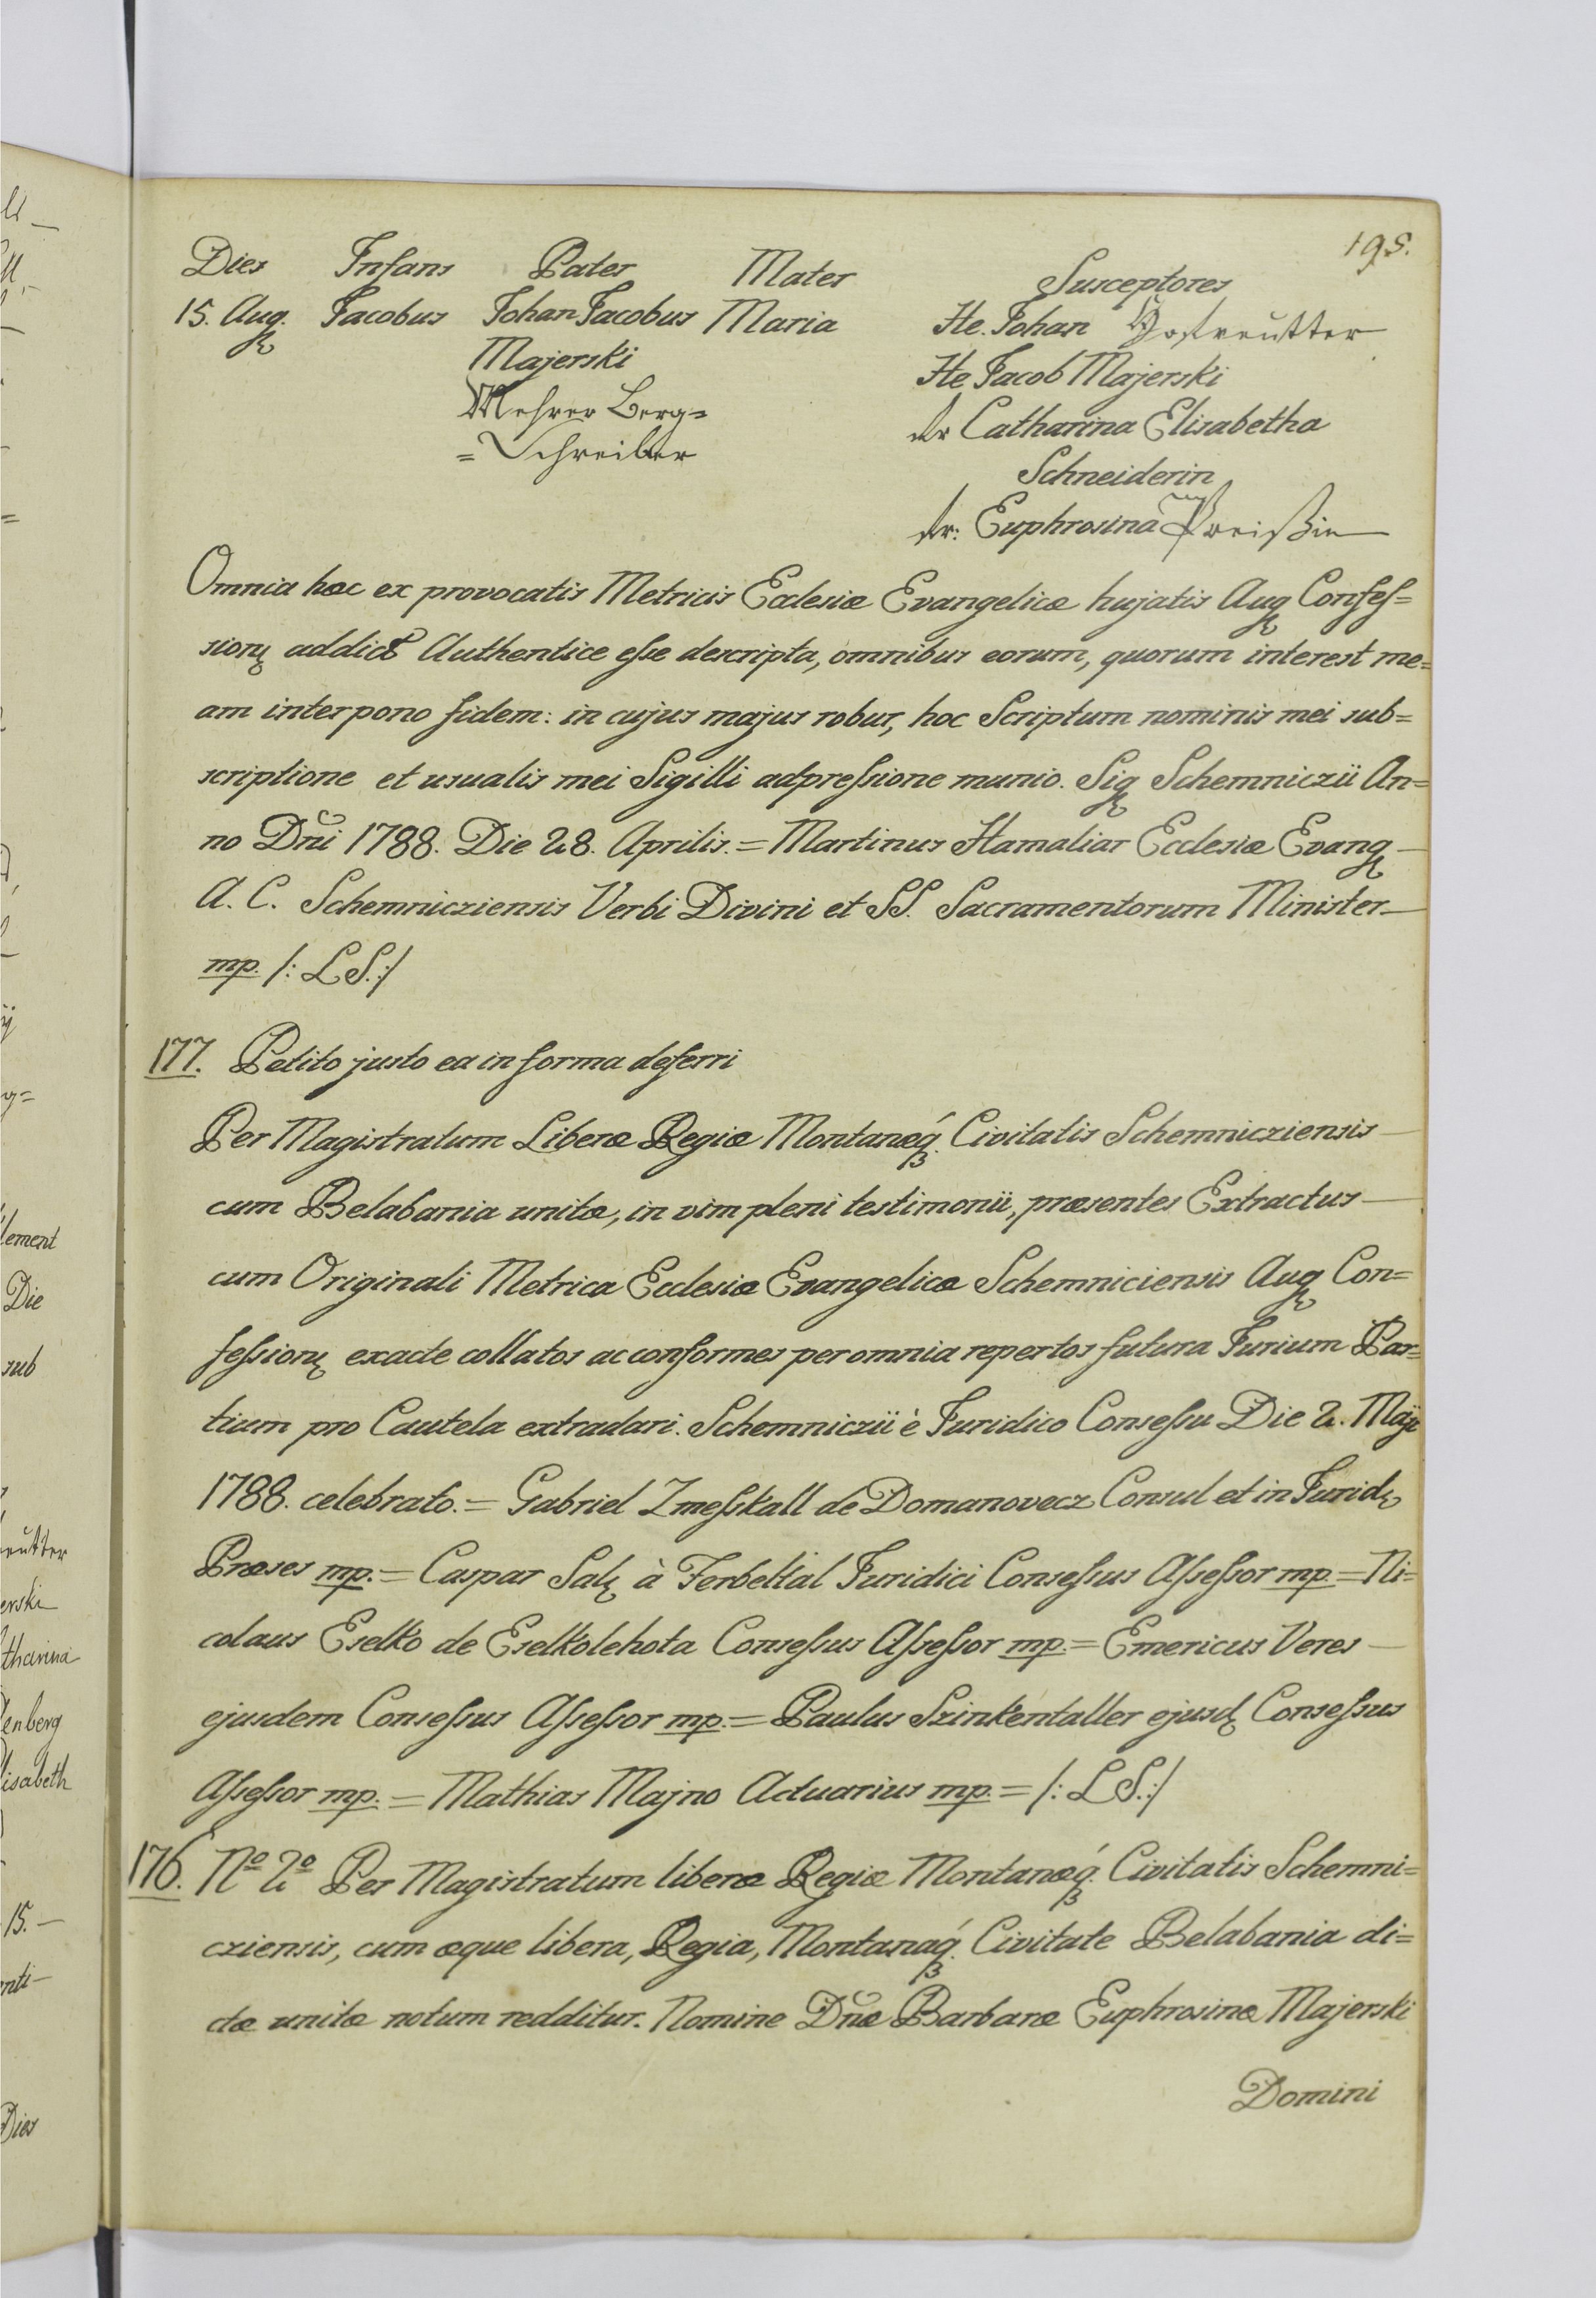 195.
Dies Infans Pater Mater Susceptores
15. Aug. Jacobus Johan Jacobus Maria He. Johan Hostreutter
Majerski He Jacob Majerski
Mehrer Berg= dr Catharina Elisabetha
=Schreiber Schneiderin
dr: Euphrosina Preißin
Omnia hæc ex provocatis Metricis Ecclesiæ Evangelicæ hujatis Aug Confeſ=
sion addict Authentice eſse descripta, omnibus eorum, quorum interest me=
am interpono fidem: in cujus majus robur, hoc Scriptum nominis mei sub=
scriptione et usualis mei Sigilli adpreſsione munio. Sig Schemniczii An=
no Dn̄i 1788. Die 28. Aprilis. = Martinus Hamaliar Ecclesiæ Evang
A. C. Schemnicziensis Verbi Divini et SS. Sacramentorum Minister
mp. /: L S.:/
177. Petito justo ea in forma deferri
Per Magistratum Liberæ Regiæ Montanæq́. Civitatis Schemnicziensis
cum Belabania unitæ, in vim pleni testimonii, præsentes Extractus
cum Originali Metrica Ecclesiæ Evangelicæ Schemniciensis Aug Con=
feſsion exacte collatos ac conformes per omnia repertos futura Jurium Par=
tium pro Cautela extradari. Schemniczii è Juridico Conseſsu Die 2. Maji
1788. celebrato. = Gabriel Zmeſskall de Domanovecz Consul et in Jurid
Præses mp. = Caspar Salz à Ferbeltal Juridici Conseſsus Aſseſsor mp. = Ni=
colaus Eselko de Eselkolehota Conseſsus Aſseſsor mp. = Emericus Veres
ejusdem Conseſsus Aſseſsor mp. = Paulus Szinkentaller ejusd Conseſsus
Aſseſsor mp. = Mathias Majno Actuarius mp. = /: L S.:/
176. No 2o Per Magistratum liberæ Regiæ Montanæq́. Civitatis Schemni=
cziensis, cum æque libera, Regia, Montanaq́. Civitate Belabania di=
ctæ unitæ notum redditur. Nomine Dn̄æ Barbaræ Euphrosinæ Majerski
Domini